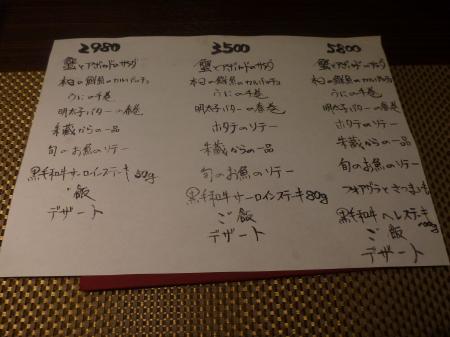 2980
蟹とアボカドのサラダ
本日の鮮魚のカルパッチョ
うにの手巻
明太子バターの春巻
朱蔵からの一品
旬のお魚のソテー
黒毛和牛サーロインステーキ80g
ご飯
デザート
3500
蟹とアボカドのサラダ
本日の鮮魚のカルパッチョ
うにの手巻
明太子バターの春巻
ホタテのソテー
朱蔵からの一品
旬のお魚のソテー
黒毛和牛サーロインステーキ80g
ご飯
デザート
5800
蟹とアボカドのサラダ
本日の鮮魚のカルパッチョ
うにの手巻
明太子バターの春巻
ホタテのソテー
朱蔵からの一品
旬のお魚のソテー
フォアグラとさつまいも
黒毛和牛ヘレステーキ
100g
ご飯
デザート